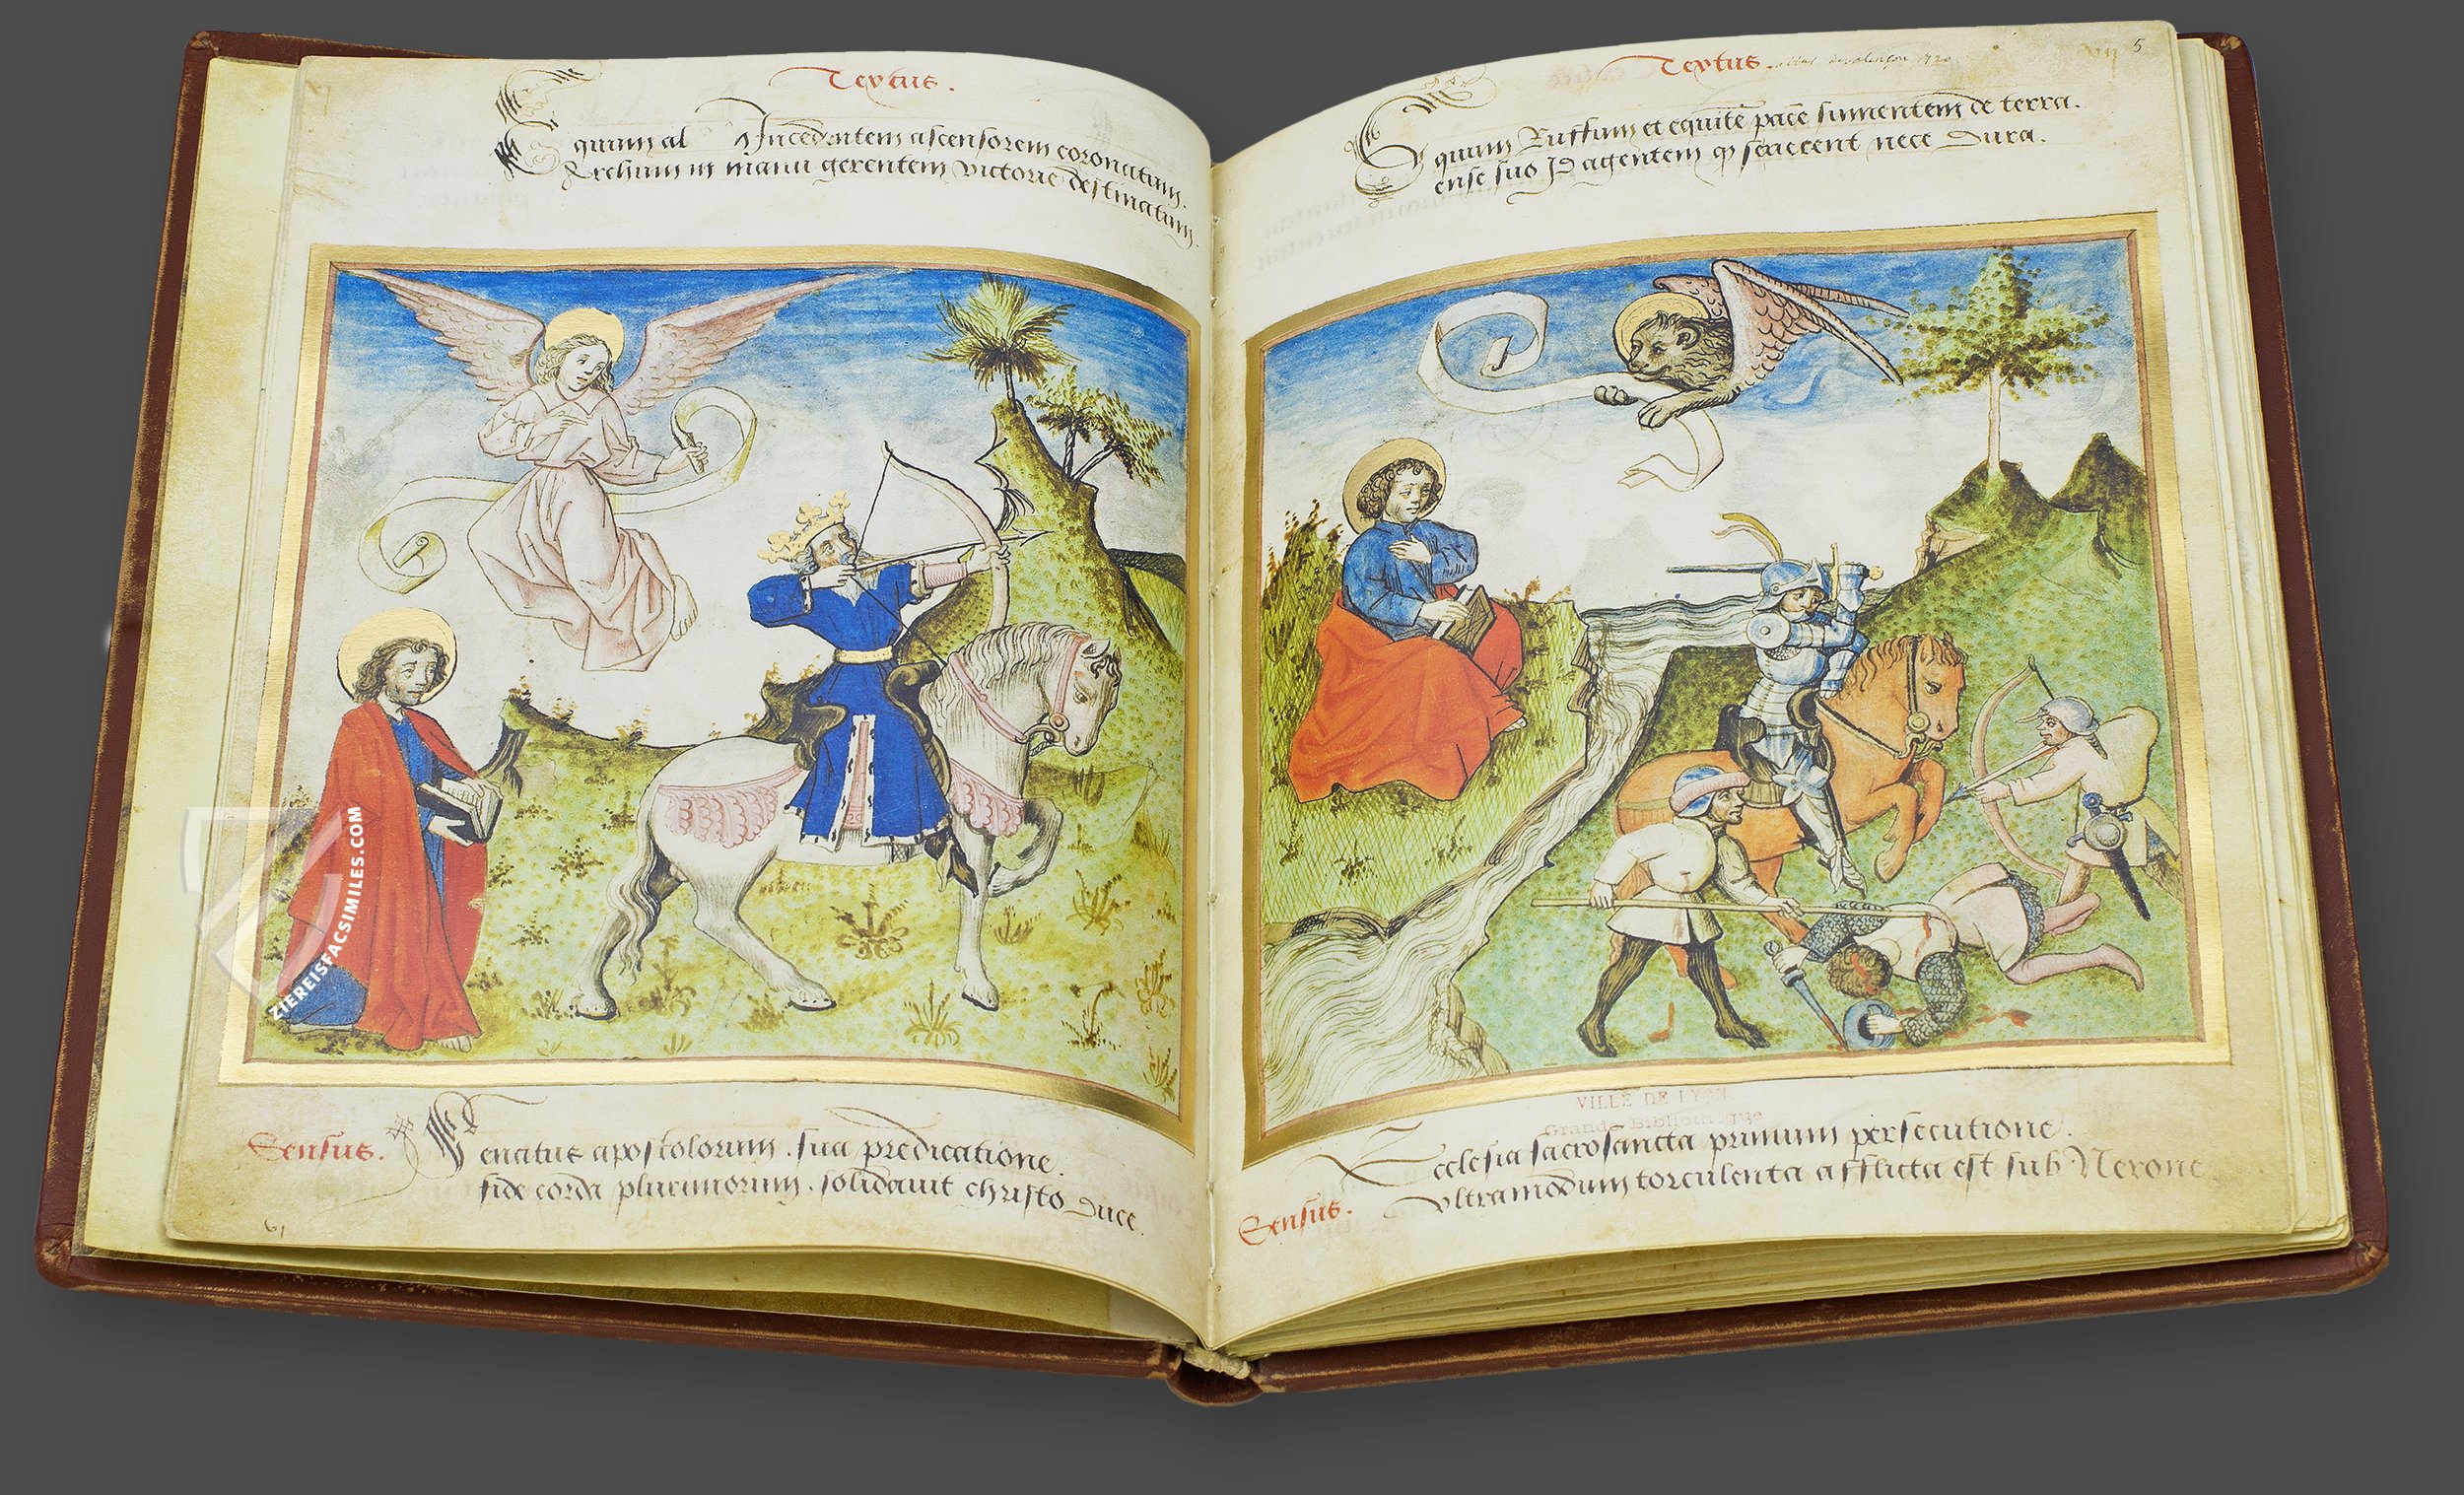 Textus.
Equum al Incedentem ascensorem coronatum.
Archum in manu gerentem victorie destinatum.
Sensus. Venatus apostolorum. sua predicatione.
fide corda plurimorum. solidauit christo duce.
Textus.
5
Equum Ruffum et equitē pacē sumentem de terra.
ense suo agentem nece dura.
VILLE DE LYON
Grande Bibliothèque
Ecclesia sacrosancta primum persecutione.
Sensus. vltramodum torculenta afflicta est sub Nerone
ZIEREISFACSIMILES.COM